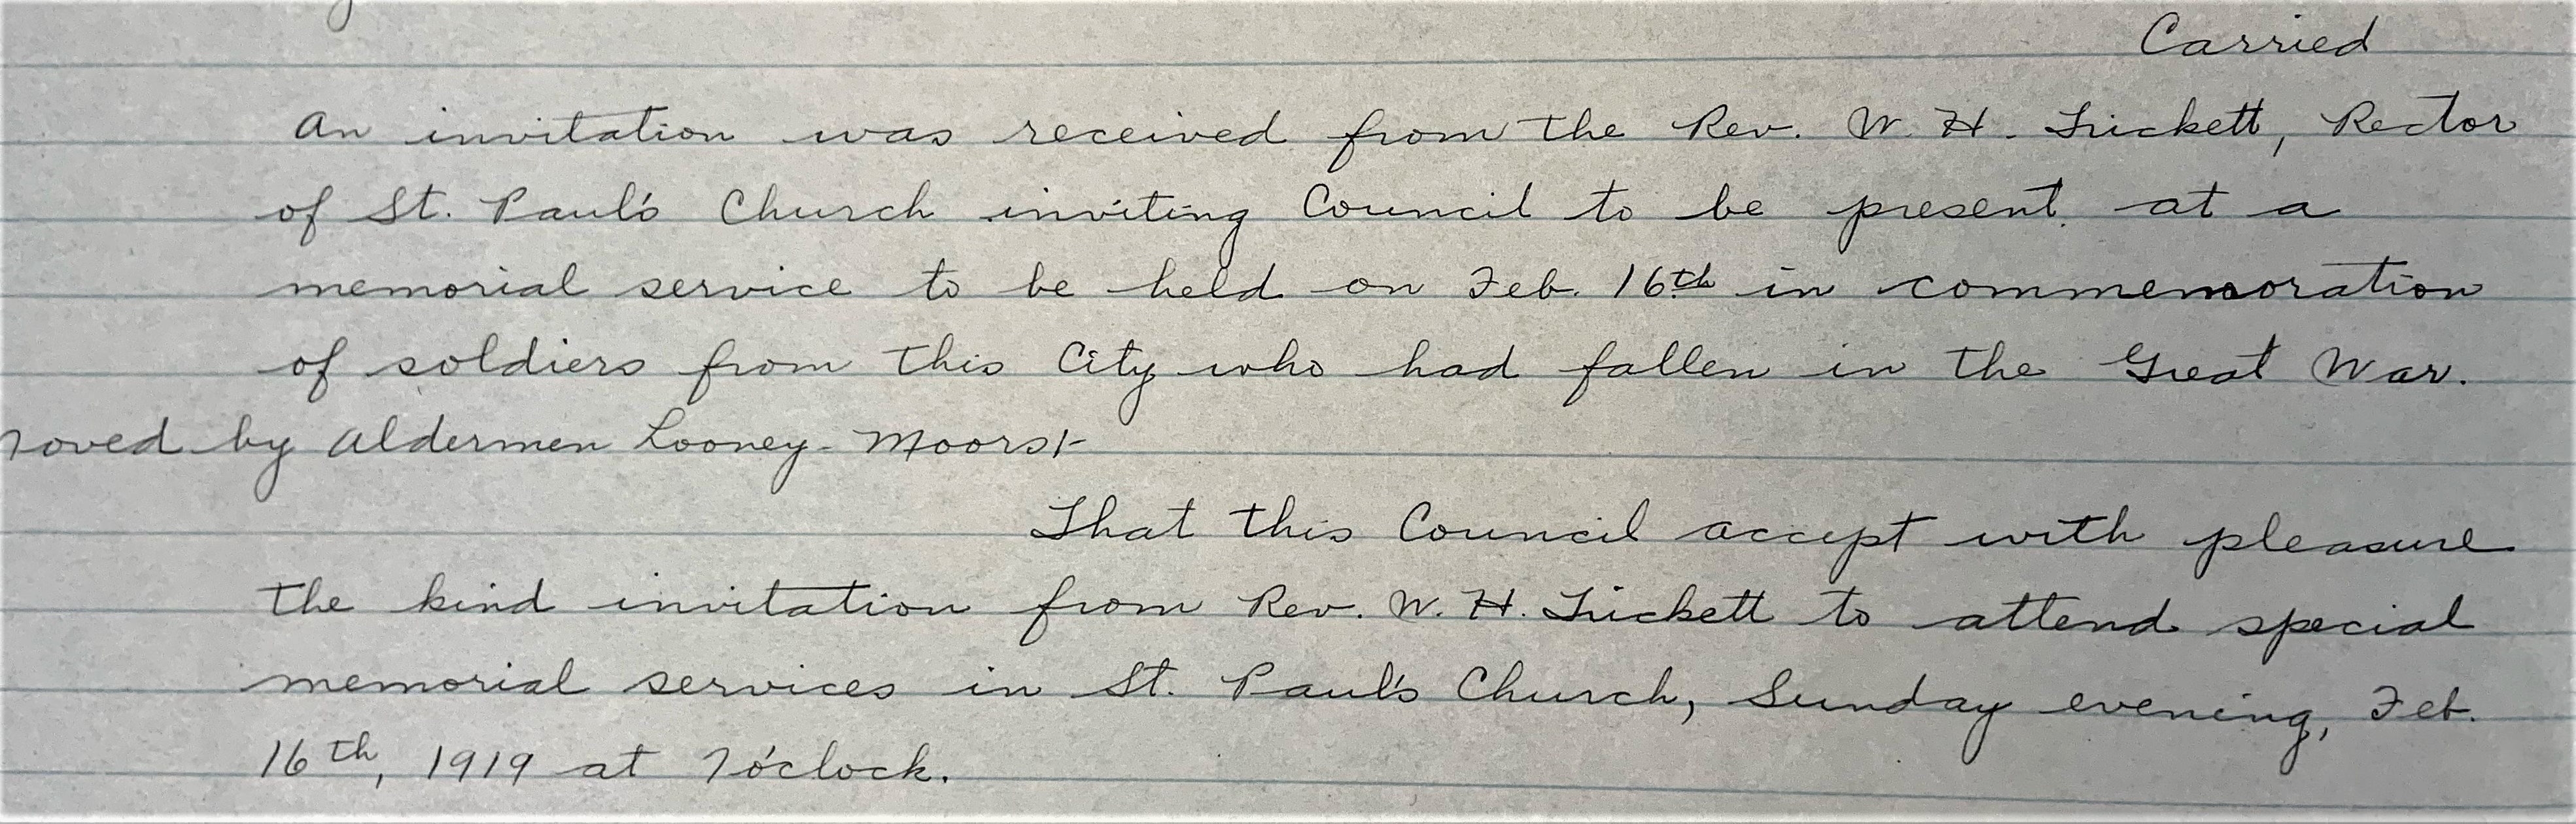 Carried
An invitation was received from the Rev. W. H. Trickett, Rector
of St. Paul's Church inviting Council to be present at a
memorial service to be held on Feb. 16th in commemoration
of soldiers from this City who had fallen in the Great War.
Moved by Aldermen Looney-
That this Council accept with pleasure
the kind invitation from Rev. W. H. Trickett to attend special
memorial services in St. Paul's Church, Sunday evening, Feb.
16th, 1919 at 7 o'clock.